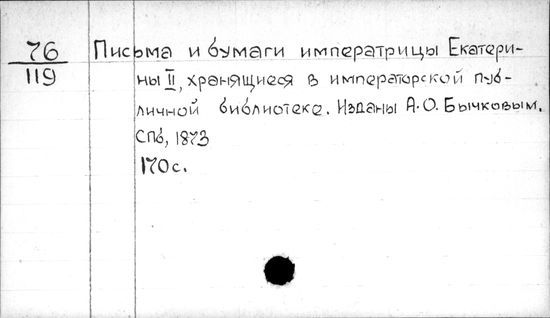 76 Письма и бумаги императрицы Екатери-
119 ны II, хранящиеся в императорской пуб-
личной библиотеке. Изданы А.О. Бычковым.
СПб, 1873
170 с.